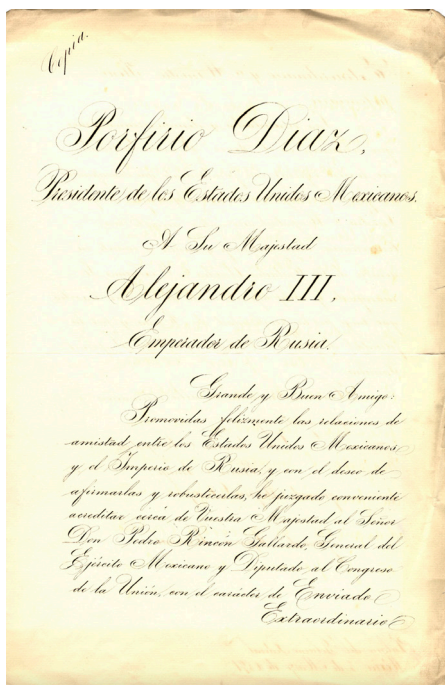 Copia.
Porfirio Diaz,
Presidente de los Estados Unidos Mexicanos.
A Su Majestad
Alejandro III,
Emperador de Rusia.
Grande y Buen Amigo:
Promovidas felizmente las relaciones de
amistad entre los Estados Unidos Mexicanos
y el Imperio de Rusia, y con el deseo de
afirmarlas y robustecerlas, he juzgado conveniente
acreditar cerca de Vuestra Majestad al Señor
Don Pedro Rincón Gallardo, General del
Ejército Mexicano y Diputado al Congreso
de la Unión, con el carácter de Enviado
Extraordinario